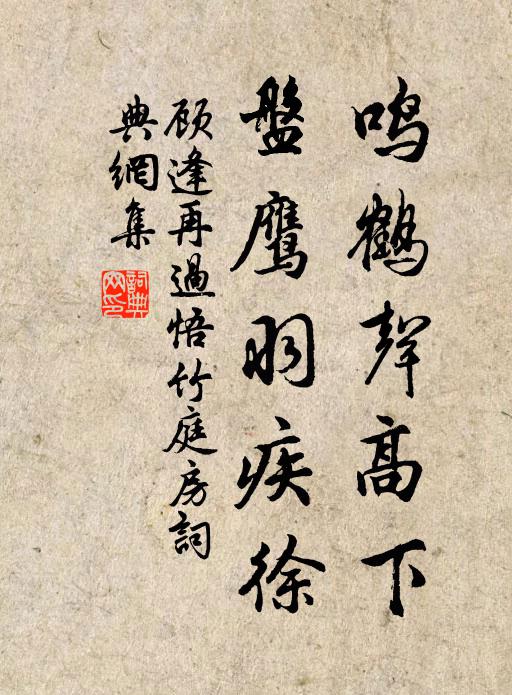 鸣鹤聲高下
盤鹰羽疾徐
顾逢再過悟竹庭房詞
典網集
詞典
网印